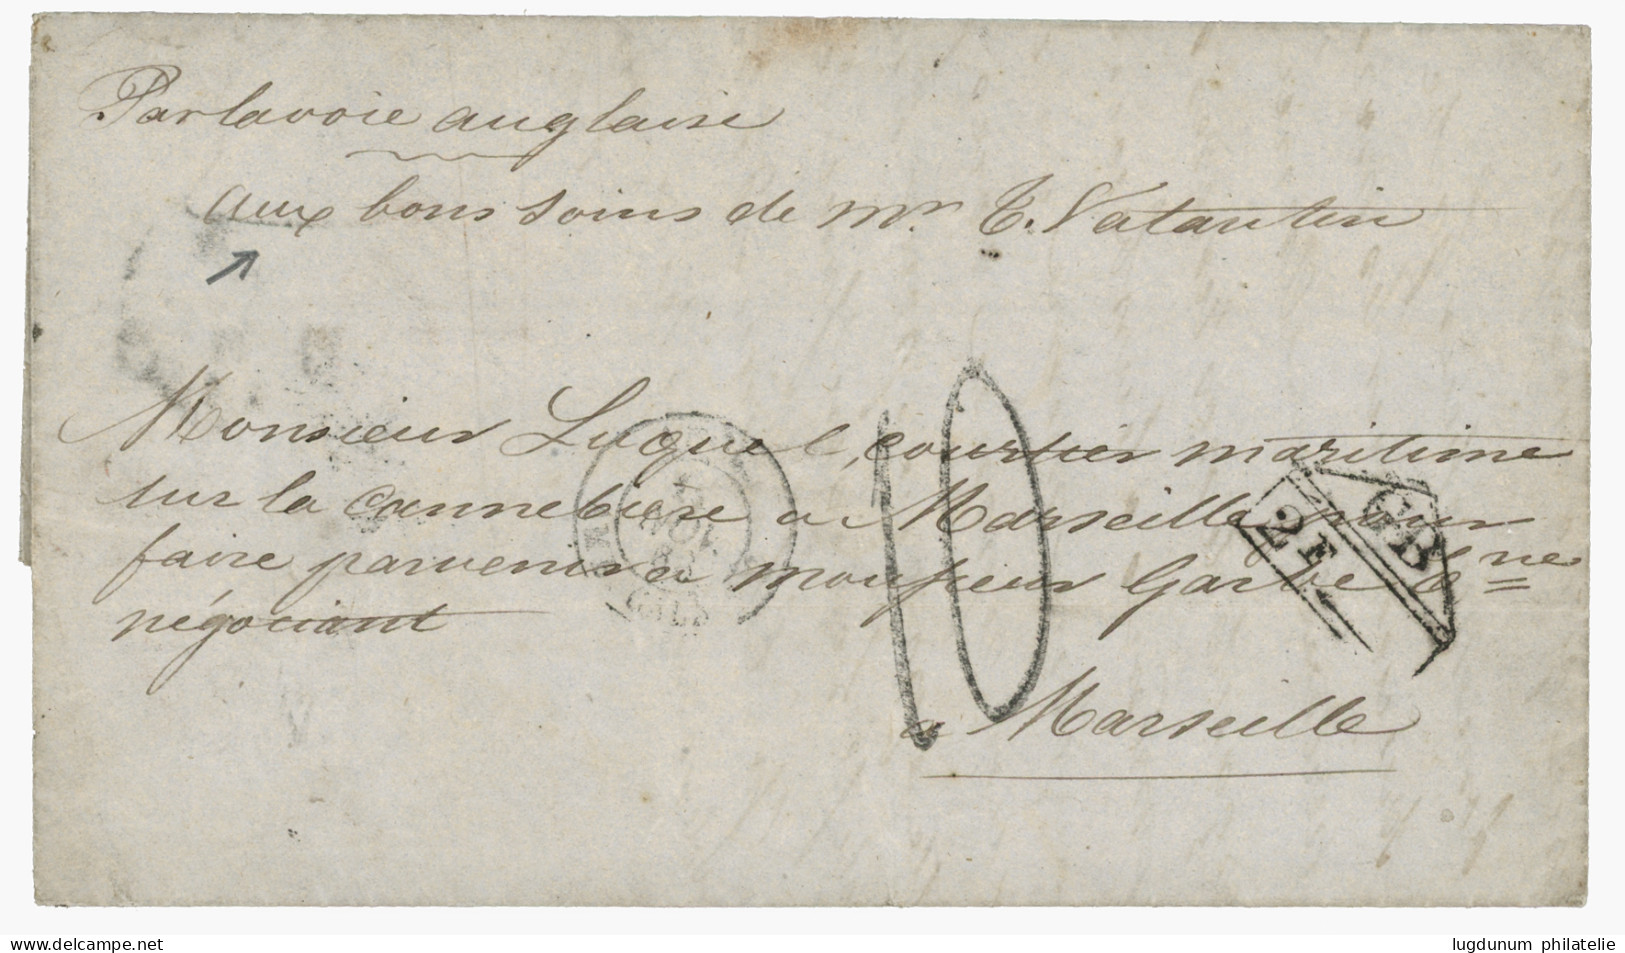 Par la voie anglaise
aux bons soins de Mr. T. Vatantin
Monsieur Luquel, courtier maritime
sur la cannebière a Marseille pour
faire parvenir a monsieur Garbe
négociant
a Marseille
10
GB
2F
NOV
delcampe.net
lugdunum philatelie